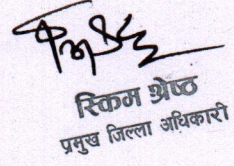 स्किम श्रेष्ठ
प्रमुख जिल्ला अधिकारी